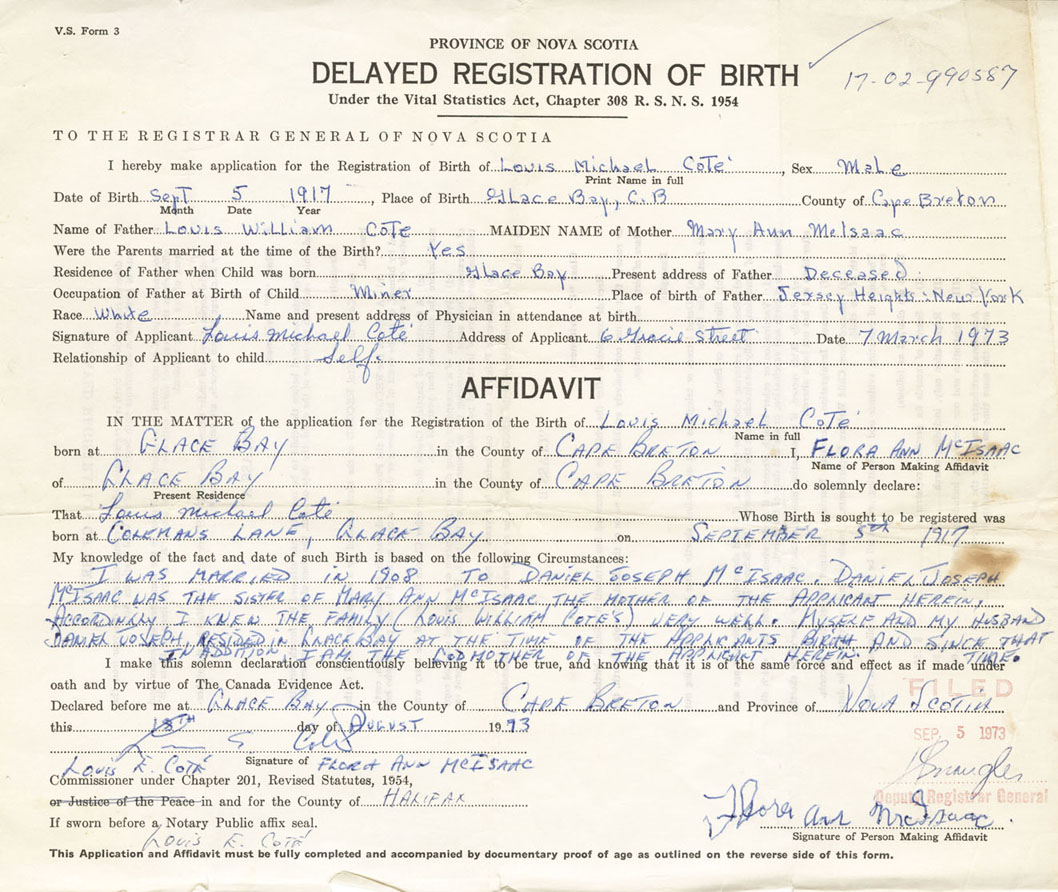 V.S. Form 3
PROVINCE OF NOVA SCOTIA
DELAYED REGISTRATION OF BIRTH
17-02-990587
Under the Vital Statistics Act, Chapter 308 R. S. N. S. 1954
TO THE REGISTRAR GENERAL OF NOVA SCOTIA
I hereby make application for the Registration of Birth of Louis Michael Coté, Sex Male
Print Name in full
Date of Birth Sept 5 1917, Place of Birth Glace Bay, C.B County of Cape Breton
Month Date Year
Name of Father Louis William Cote MAIDEN NAME of Mother Mary Ann McIsaac
Were the Parents married at the time of the Birth? Yes
Residence of Father when Child was born Glace Bay Present address of Father Deceased
Occupation of Father at Birth of Child Miner Place of birth of Father Jersey Heights New York
Race White Name and present address of Physician in attendance at birth
Signature of Applicant Louis Michael Coté Address of Applicant 6 Gracie Street Date 7 March 1973
Relationship of Applicant to child Self.
AFFIDAVIT
IN THE MATTER of the application for the Registration of the Birth of Louis Michael Coté
Name in full
born at GLACE BAY in the County of CAPE BRETON I, FLORA ANN McISAAC
Name of Person Making Affidavit
of GLACE BAY in the County of CAPE BRETON do solemnly declare:
Present Residence
That Louis Michael Coté Whose Birth is sought to be registered was
born at COLEMANS LANE, GLACE BAY on SEPTEMBER 5th 1917
My knowledge of the fact and date of such Birth is based on the following Circumstances:
I WAS MARRIED IN 1908 TO DANIEL JOSEPH McISAAC. DANIEL JOSEPH
McISAAC WAS THE SISTER OF MARY ANN McISAAC, THE MOTHER OF THE APPLICANT HEREIN.
ACCORDINLY I KNEW THE FAMILY (LOUIS WILLIAM COTE'S) VERY WELL. MYSELF AND MY HUSBAND
DANIEL JOSEPH, RESIDED IN GLACE BAY AT THE TIME OF THE APPLICANTS BIRTH AND SINCE THAT
TIME.
IN ADDITION I AM THE GODMOTHER OF THE APPLICANT HEREIN.
I make this solemn declaration conscientiously believing it to be true, and knowing that it is of the same force and effect as if made under
oath and by virtue of The Canada Evidence Act.
FILED
Declared before me at GLACE BAY in the County of CAPE BRETON and Province of NOVA SCOTIA
this 18TH day of AUGUST 1973
SEP. 5 1973
LOUIS E. COTÉ Signature of FLORA ANN McISAAC
Commissioner under Chapter 201, Revised Statutes, 1954,
Deputy Registrar General
or Justice of the Peace in and for the County of HALIFAX
Flora Ann MacIsaac
If sworn before a Notary Public affix seal.
Signature of Person Making Affidavit
LOUIS E. COTÉ
This Application and Affidavit must be fully completed and accompanied by documentary proof of age as outlined on the reverse side of this form.